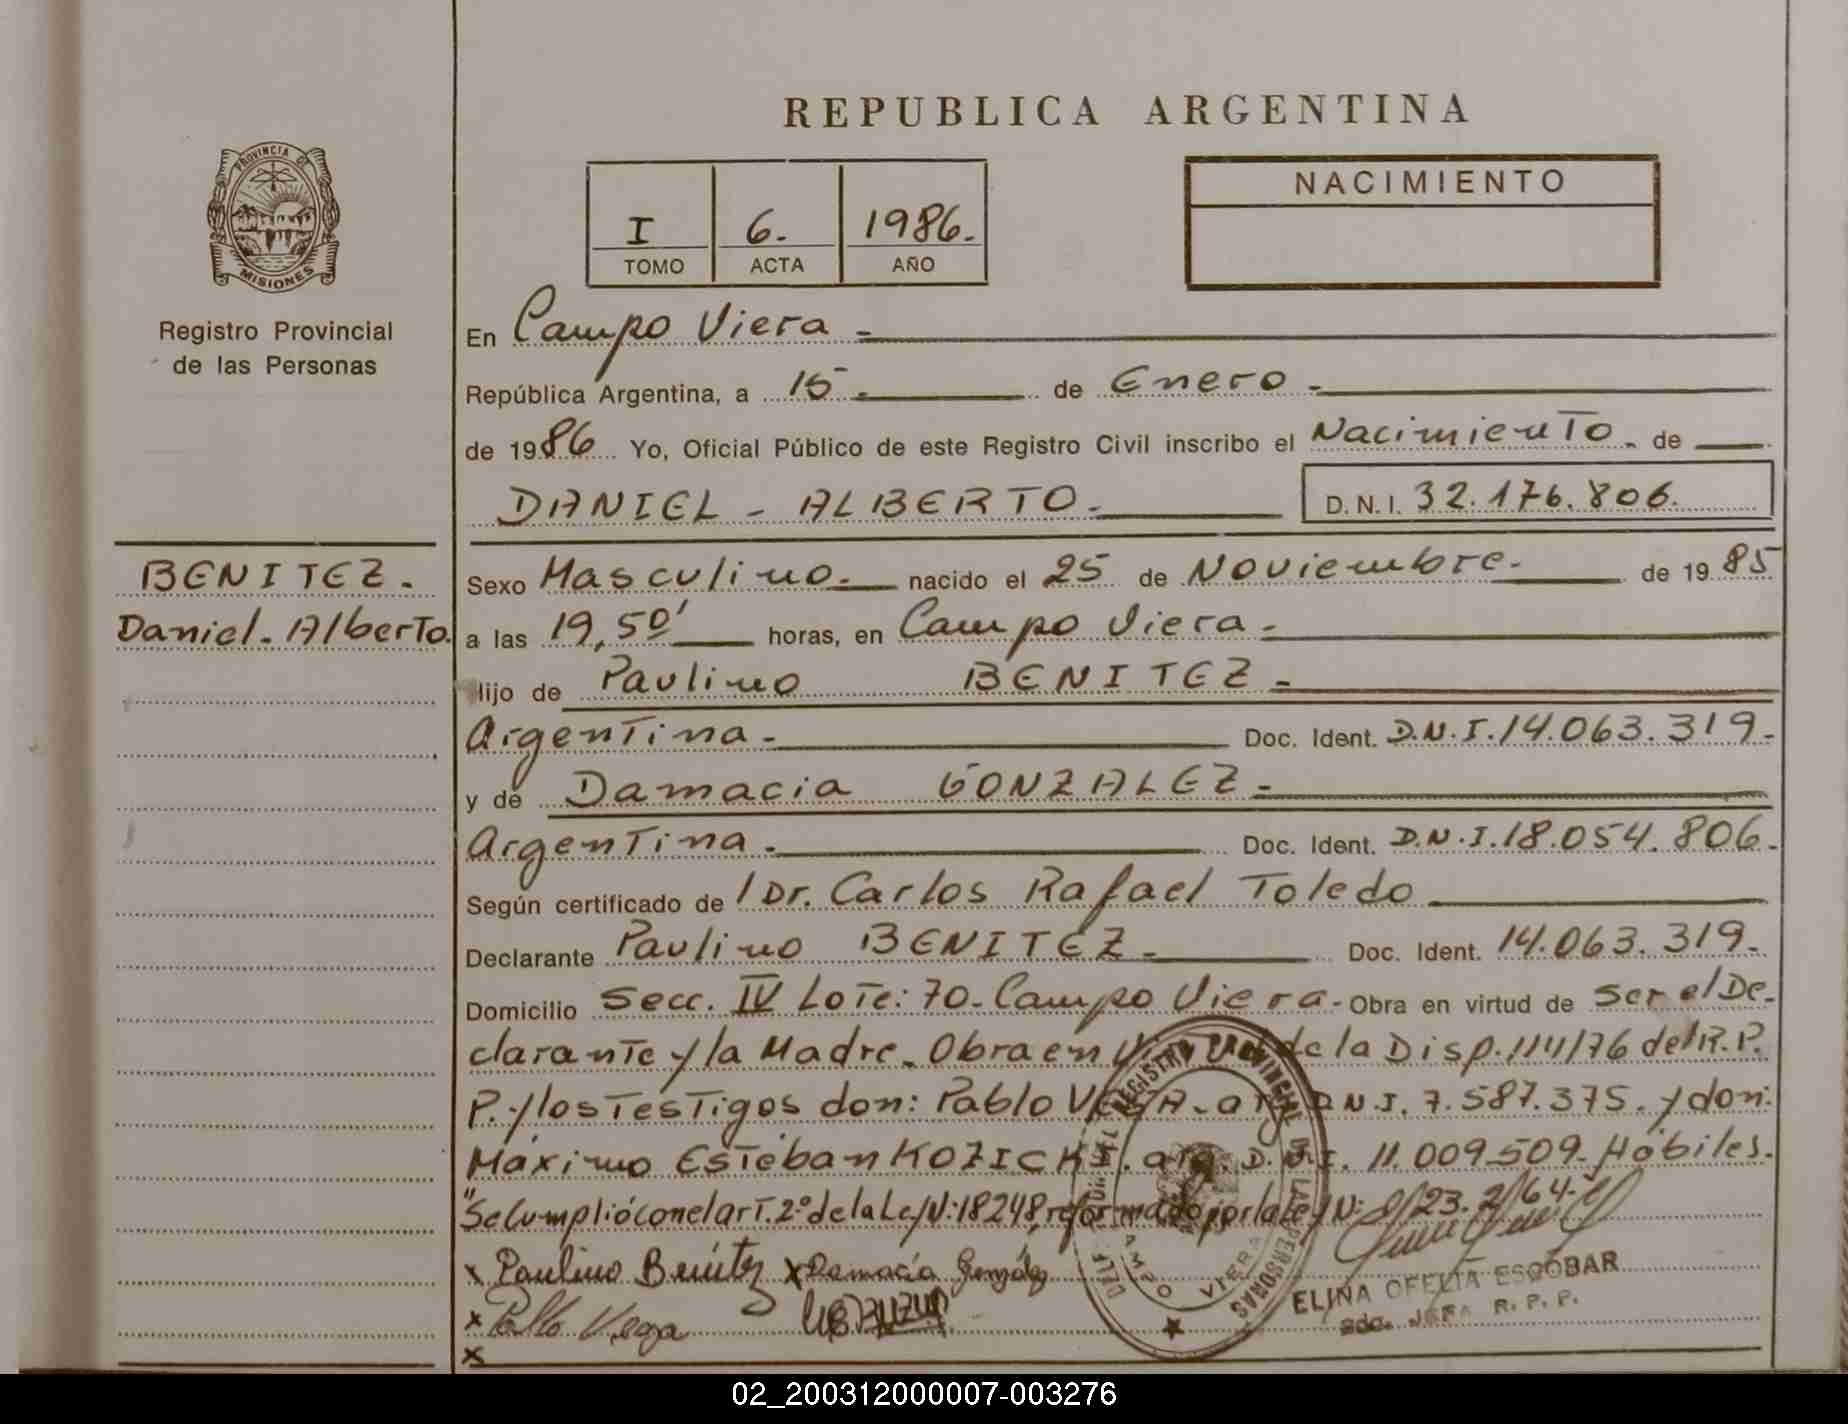 REPUBLICA ARGENTINA
PROVINCIA DE
MISIONES
Registro Provincial
de las Personas
I 6. 1986.
TOMO ACTA AÑO
NACIMIENTO
En Campo Viera.-
República Argentina, a 15.- de Enero.-
de 1986 Yo, Oficial Público de este Registro Civil inscribo el Nacimiento.- de
DANIEL - ALBERTO.- D.N.I. 32.176.806.
BENITEZ.-
Daniel. Alberto.
Sexo Masculino.- nacido el 25 de Noviembre.- de 1985
a las 19,50' horas, en Campo Viera.-
hijo de Paulino BENITEZ.-
Argentina.- Doc. Ident. D.N.I. 14.063.319.-
y de Damacia GONZALEZ.-
Argentina.- Doc. Ident. D.N.I. 18.054.806.-
Según certificado de / Dr. Carlos Rafael Toledo
Declarante Paulino BENITEZ.- Doc. Ident. 14.063.319.-
Domicilio Secc. IV Lote: 70.- Campo Viera.- Obra en virtud de ser el De-
clarante y la Madre.- Obra en de la Disp. 114/76 del R.P.
P. y los testigos don: Pablo VEGA.- arg. D.N.I. 7.587.375. y don:
Máximo Esteban KOZICKI. arg. D.N.I. 11.009.509.- Hábiles.-
"Se Cumplió con el art. 2º de la Ley N: 18248, reformado por la Ley N: 23.264.-"
x Paulino Benítez x Damacia González
x Pablo Vega
x
REGISTRO PROVINCIAL DE LAS PERSONAS
CAMPO VIERA
ELINA OFELIA ESCOBAR
R.P.P.
02_200312000007-003276